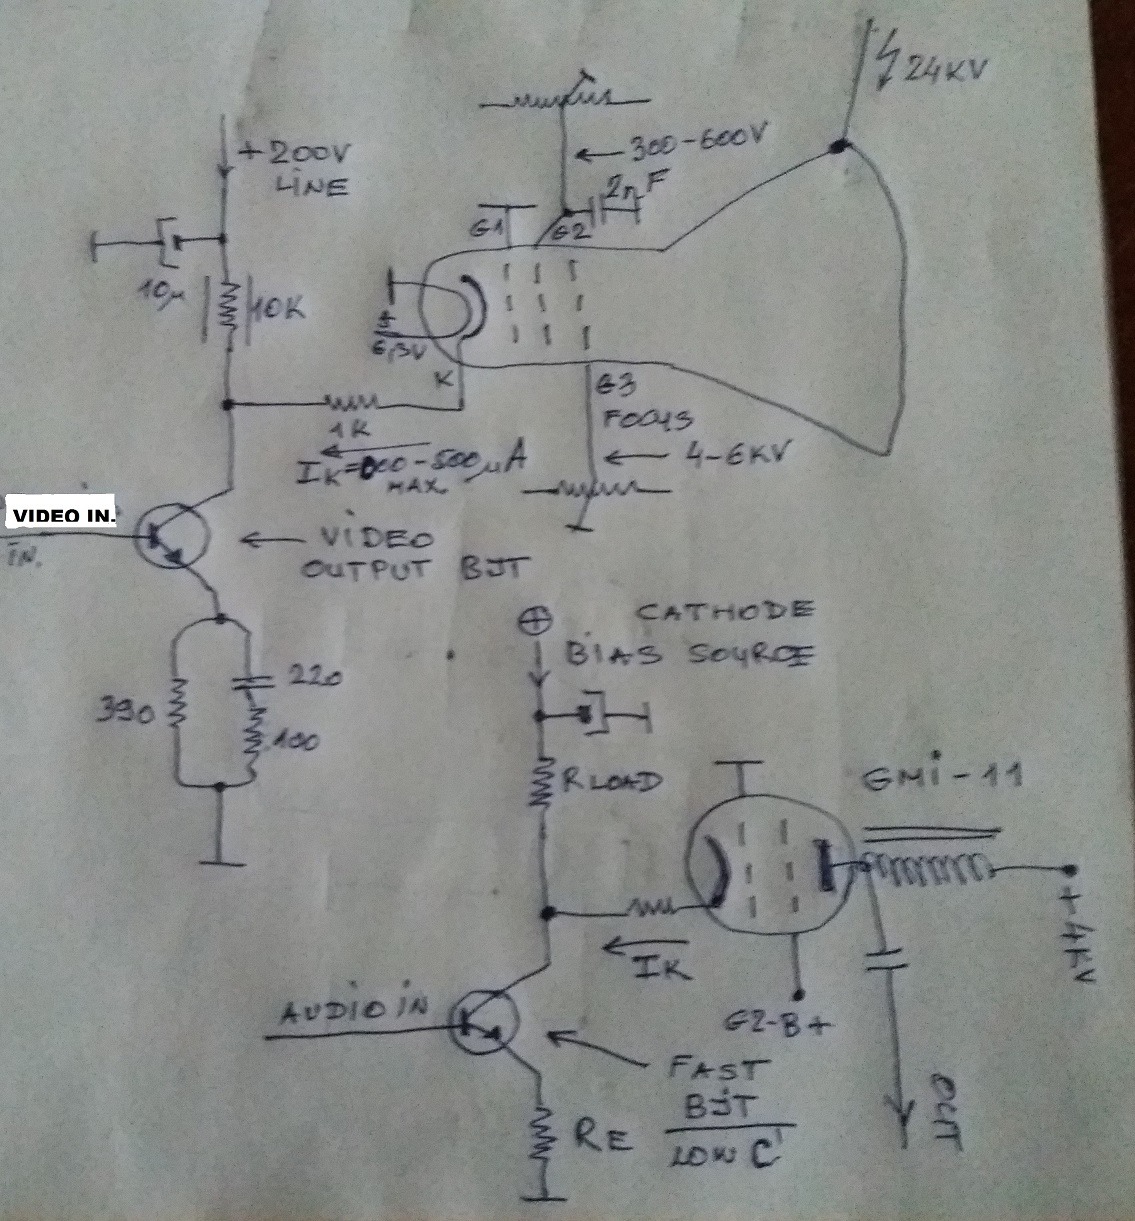 24KV
+200V
LINE
300-600V
2nF
G1
G2
10µ
10K
6,3V
K
G3
FOCUS
1K
4-6KV
MAX.
VIDEO IN.
IN.
VIDEO
OUTPUT BJT
CATHODE
BIAS SOURCE
220
390
100
RLOAD
GMi-11
+4KV
IK
AUDIO IN
G2-B+
FAST
BJT
LOW C
RE
OUT